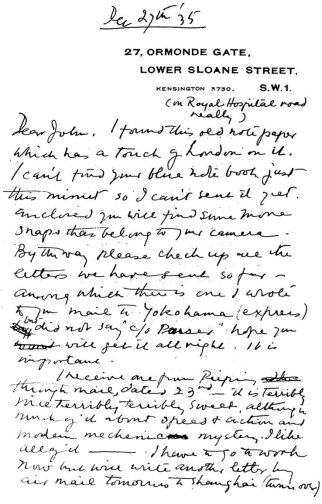 Dec 27th '35
27, ORMONDE GATE,
LOWER SLOANE STREET,
KENSINGTON 3730. S.W.1.
(on Royal Hospital road
really)
Dear John. I found this old note paper
which has a touch of London on it.
I can't find your blue note book just
this minute so I can't sent it yet.
Enclosed you will find some more
snaps that belong to your camera.
By the way please check up all the
letters we have sent so far –
among which there is one I wrote
to you mail to Yokohama (express)
but did not say "c/o Purser" hope you
will get it all right. It is
important.
I receive one from Peiping
through mail, dated 23rd – it is terribly
nice terribly terribly sweet, although
much of it about speed & action and
modern mechanic mystery. I like
all of it —. I have to go to work
now but will write another letter by
air mail tomorrow to Shanghai (turn over)